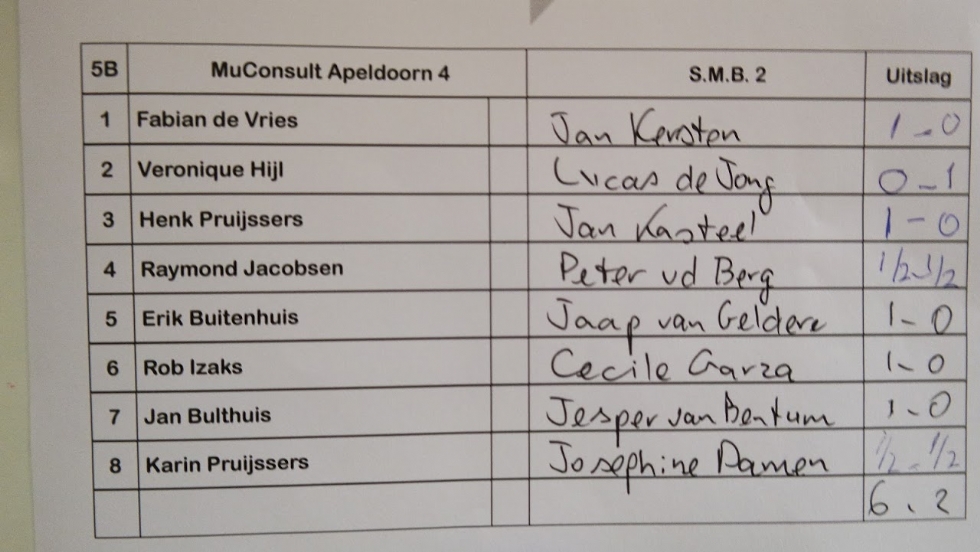 5B MuConsult Apeldoorn 4 S.M.B. 2 Uitslag
1 Fabian de Vries Jan Kersten 1-0
2 Veronique Hijl Lucas de Jong 0-1
3 Henk Pruijssers Jan Kasteel 1-0
4 Raymond Jacobsen Peter vd Berg 1/2-1/2
5 Erik Buitenhuis Jaap van Geldere 1-0
6 Rob Izaks Cecile Garza 1-0
7 Jan Bulthuis Jesper van Bentum 1-0
8 Karin Pruijssers Josephine Damen 1/2-1/2
6.2